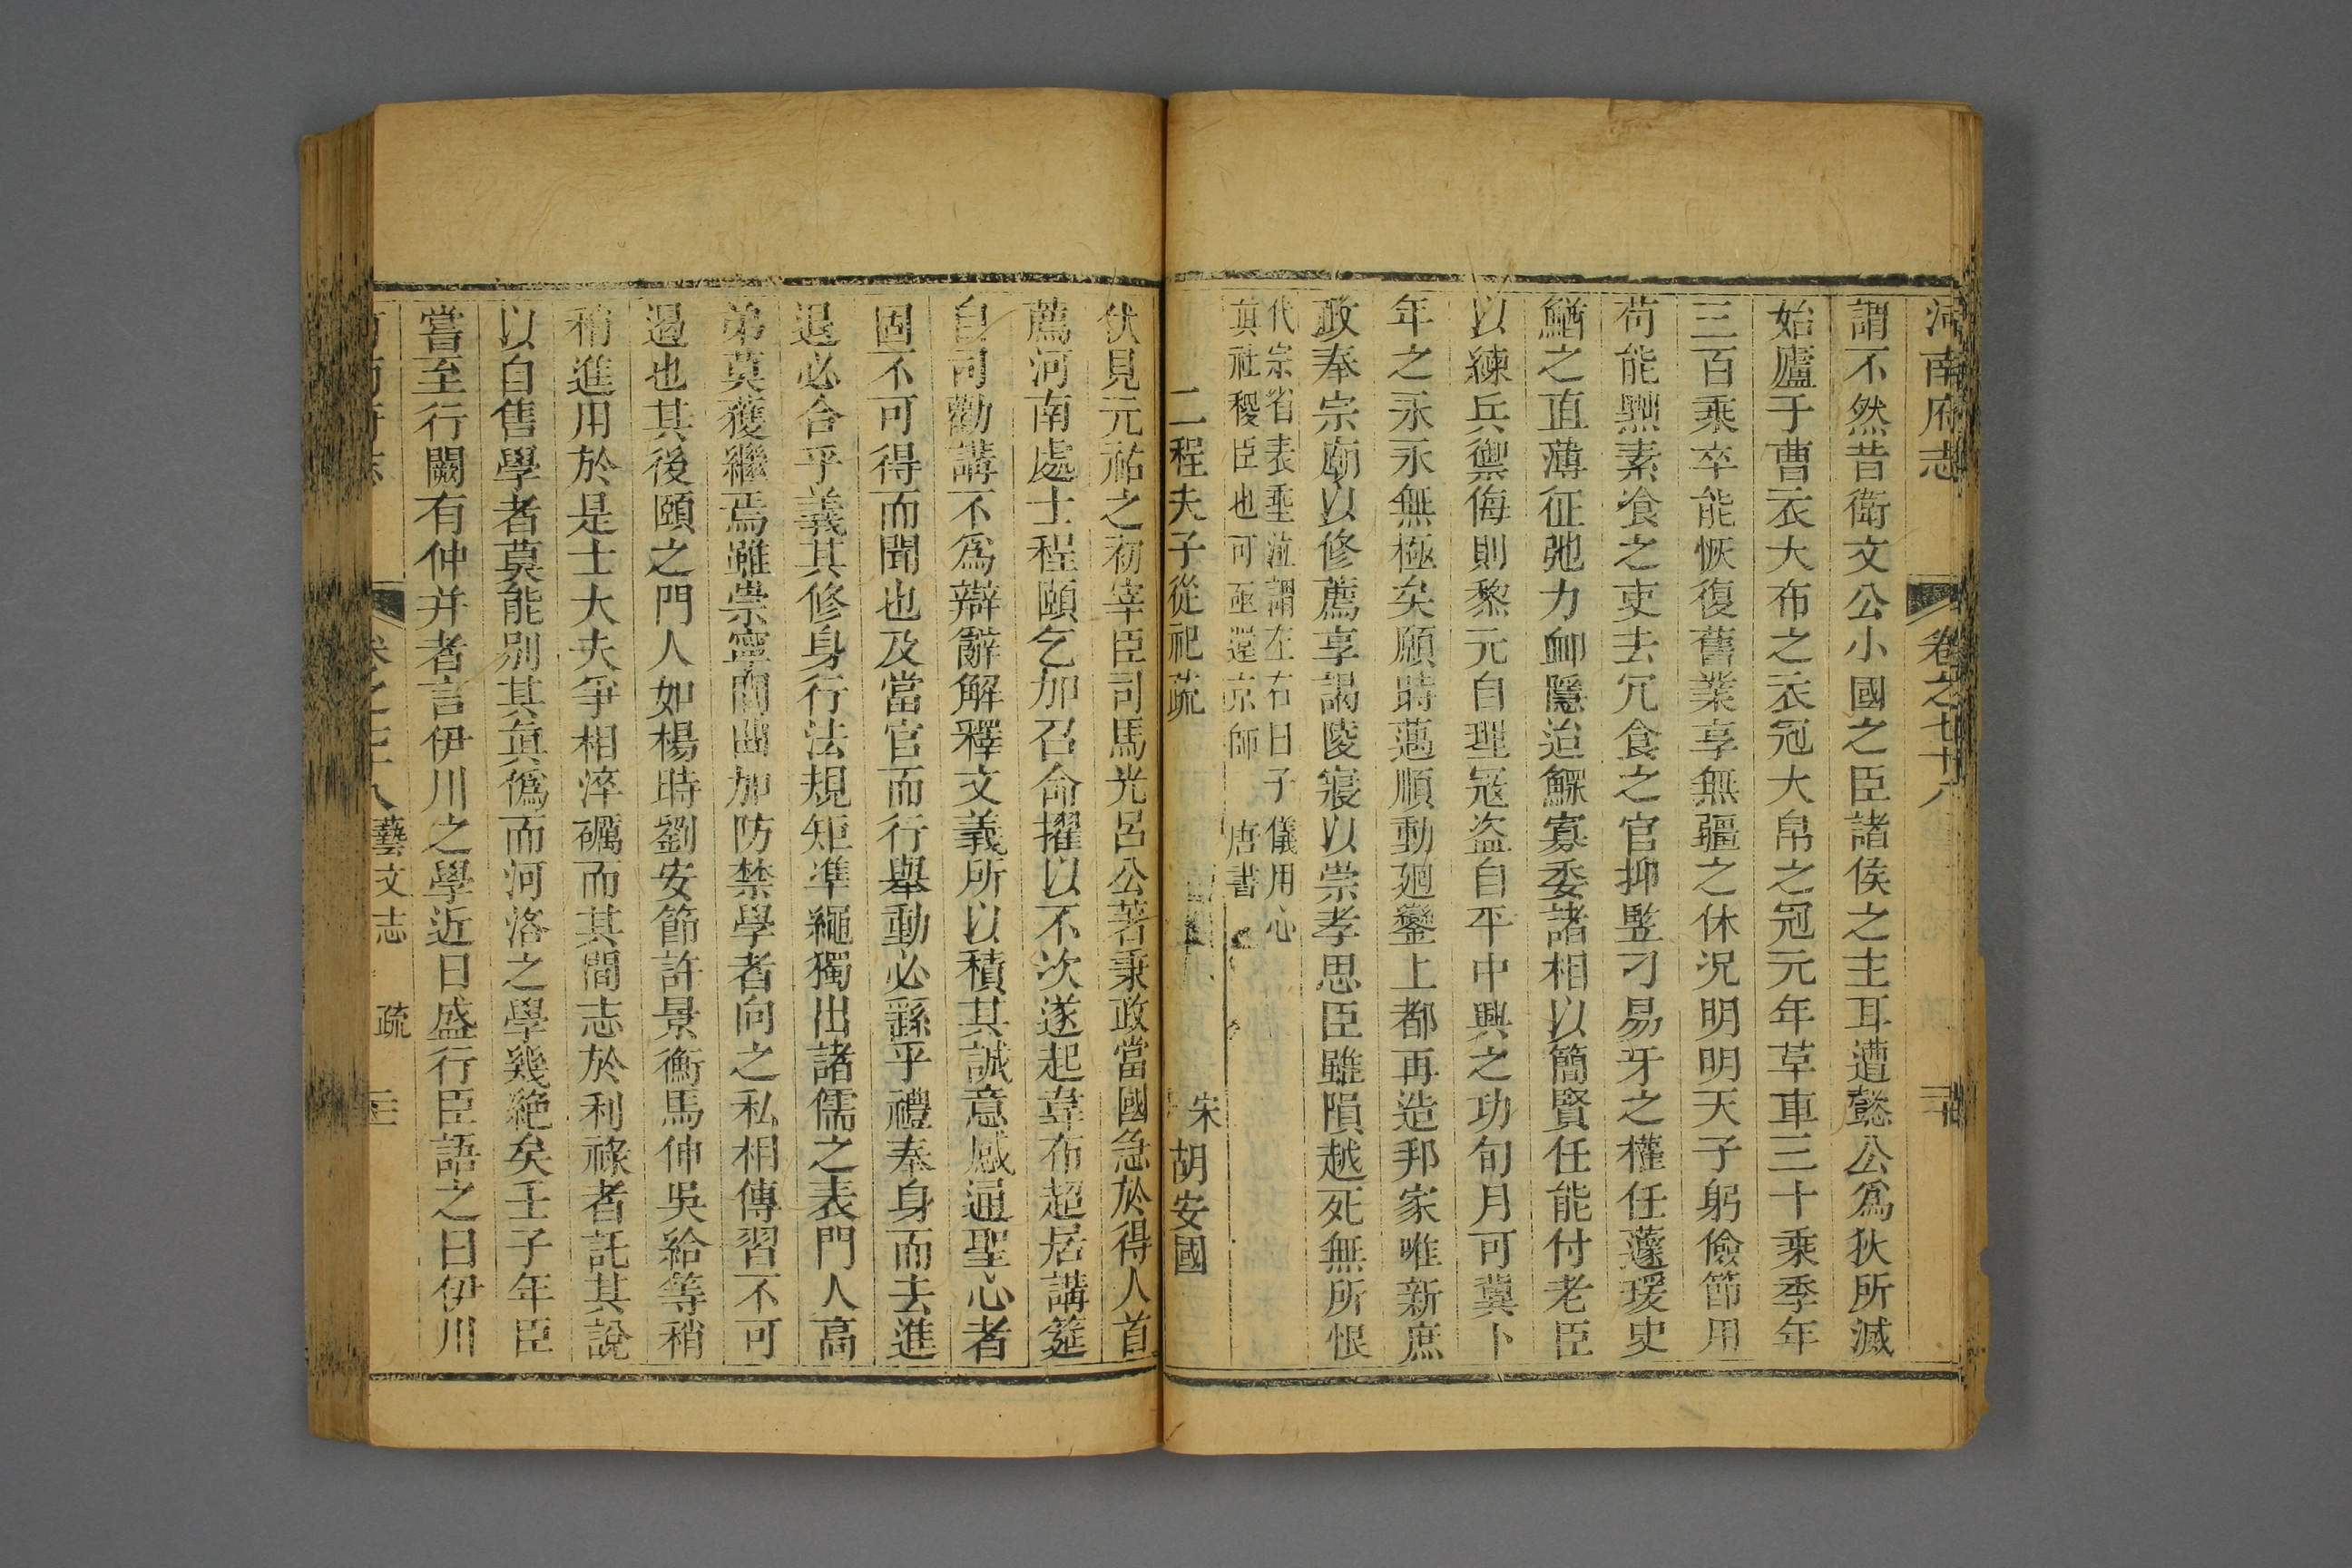 河南府志 卷之七十八
謂不然昔衛文公小國之臣諸侯之主耳遭懿公爲狄所滅
始廬于曹衣大布之衣冠大帛之冠元年草車三十乘季年
三百乘卒能恢復舊業享無疆之休况明明天子躬儉節用
苟能黜素飡之吏去冗食之官抑豎刁易牙之權任蘧瑗史
鰌之直薄征弛力卹隱迨鰥寡委諸相以簡賢任能付老臣
以練兵禦侮則黎元自理寇盗自平中興之功旬月可冀卜
年之永永無極矣願時邁順動廻鑾上都再造邦家唯新庶
政奉宗廟以修薦享謁陵寢以崇孝思臣雖隕越死無所恨
代宗省表垂泣謂左右曰子儀用心
眞社稷臣也可亟還京師 唐書
二程夫子從祀疏 宋胡安國
伏見元祐之初宰臣司馬光呂公著秉政當國急於得人首
薦河南處士程頤乞加召命擢以不次遂起韋布超居講筵
自司勸講不爲辯辭解釋文義所以積其誠意感通聖心者
固不可得而聞也及當官而行舉動必繇乎禮奉身而去進
退必合乎義其修身行法規矩準繩獨出諸儒之表門人高
弟莫獲繼焉雖崇寧間曲加防禁學者向之私相傳習不可
遏也其後頤之門人如楊時劉安節許景衡馬伸吳給等稍
稍進用於是士大夫爭相淬礪而其間志於利祿者託其說
以自售學者莫能別其眞僞而河洛之學幾絶矣壬子年臣
嘗至行闕有仲并者言伊川之學近日盛行臣語之曰伊川
藝文志 疏